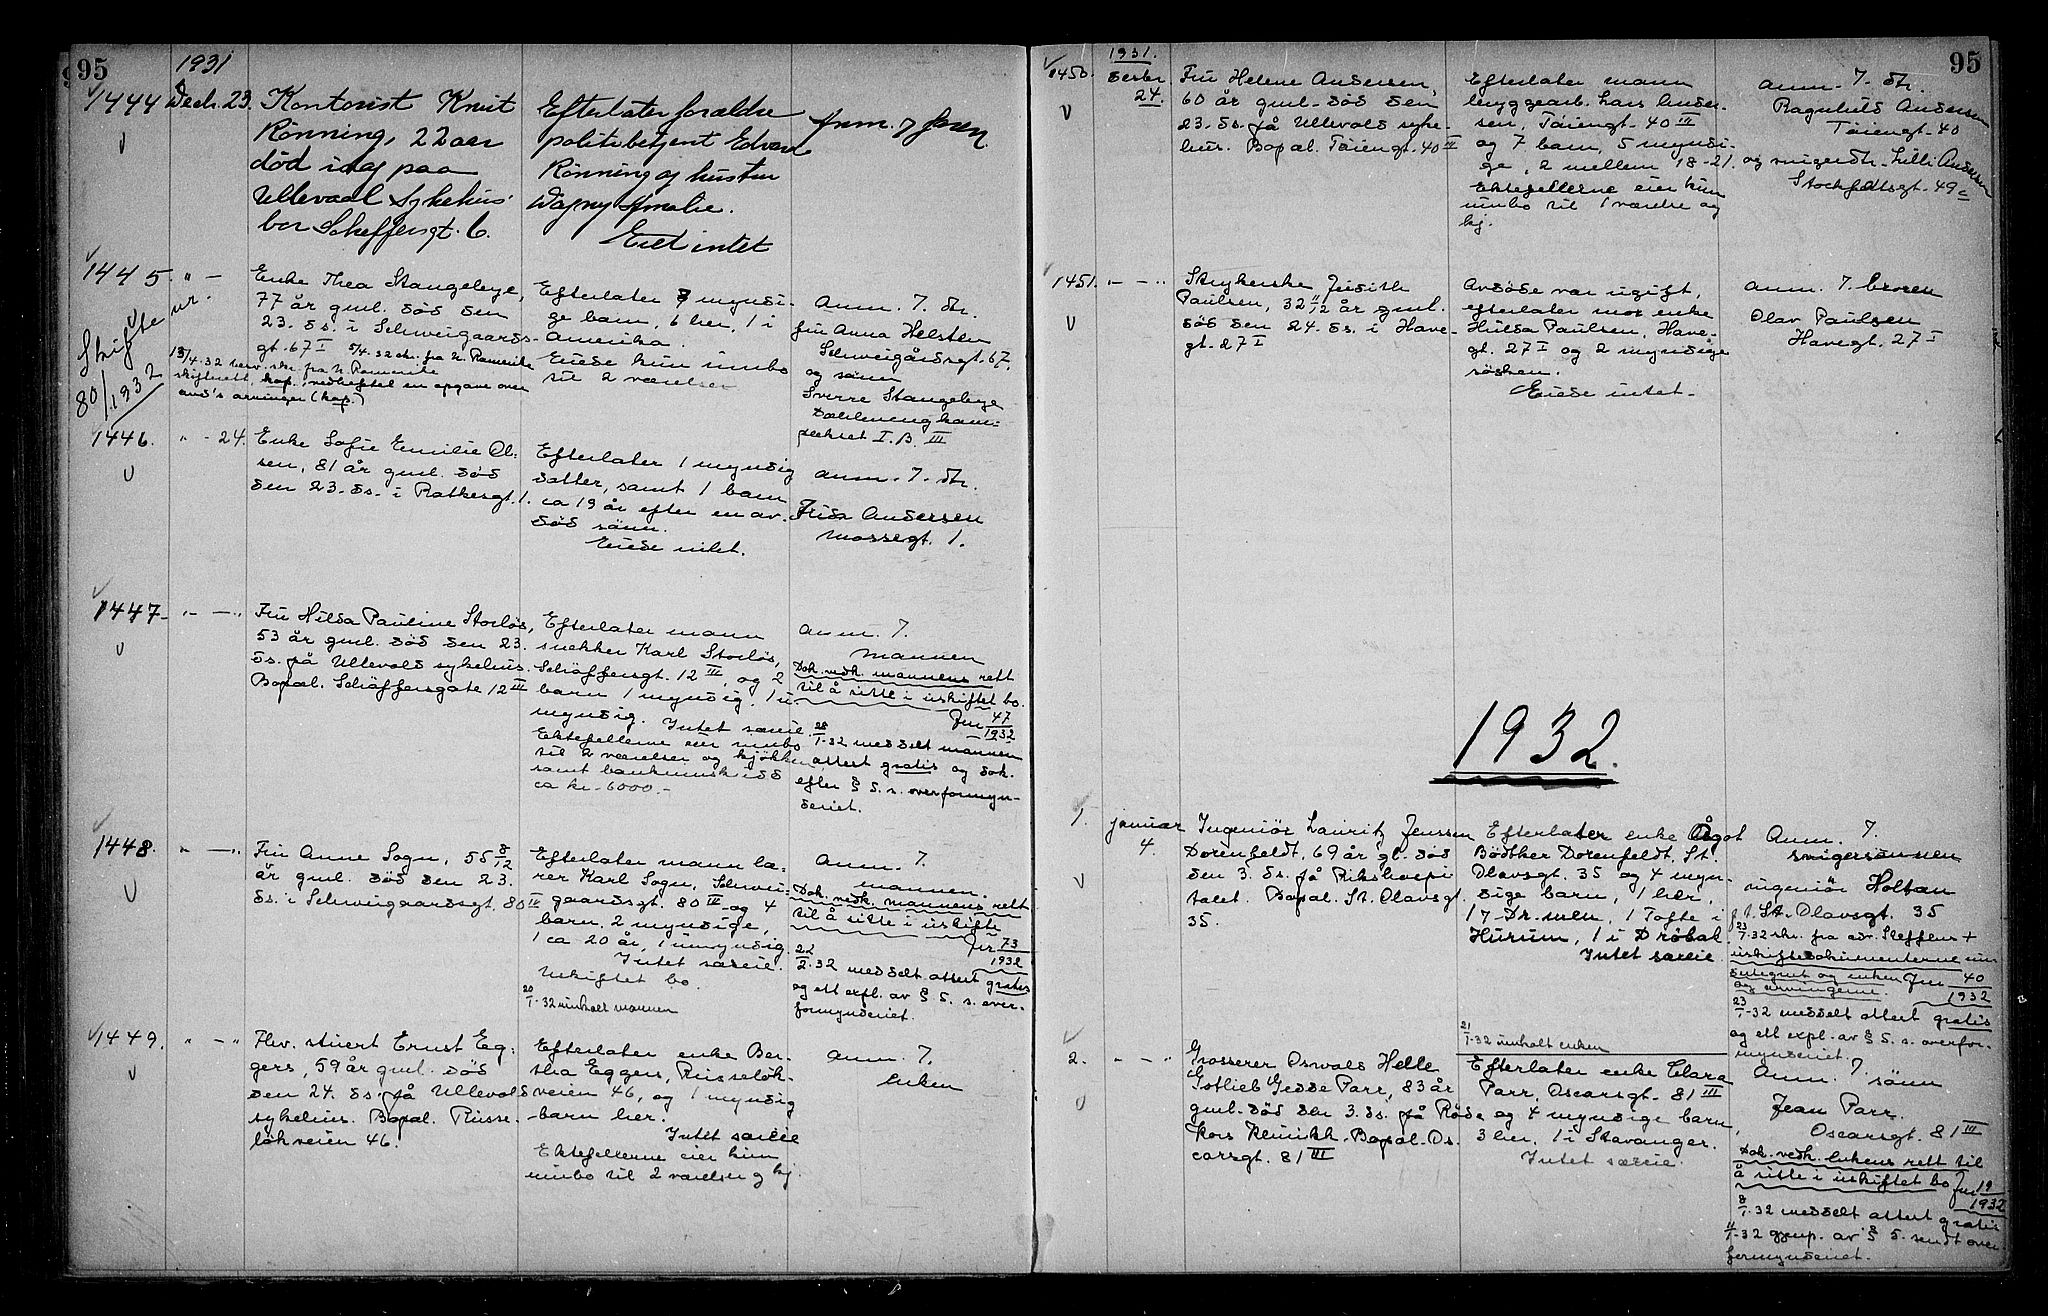 95
1931
1444 Decb. 23.
Kontorist Knut
Rönning, 22 aar
död idag paa
Ullevaal Sykehus
bor Scheffersgt. 6.
Efterlater forældre
politibetjent Edvard
Rönning og hustru
Dagny Amalie.
Eiet intet
Anm. 7
1445. " —
Skifte nr.
80/1932
Enke Thea Stangebye,
77 år gml. död den
23. ds. i Schweigaards-
gt. 67 I 5/4.32 skr. fra N. Romerike
13/4.32 skr. fra N. Romerike
skifterett, kop. vedheftet en opgave over
avd's arvinger (kop.)
Efterlater 7 myndi-
ge barn, 6 her, 1 i
Amerika.
Eiede kun innbo
til 2 værelser
Anm. 7. dtr.
fru Anna Helsten
Schweigårdsgt. 67.
og sönn
Sverre Stangebye
I. B. III
1446. " - 24.
Enke Sofie Emilie Ol-
sen, 81 år gml. död
den 23. ds. i Rathkesgt. 1.
Efterlater 1 myndig
datter, samt 1 barn
ca 19 år efter en av-
död sönn.
Eiede intet.
Anm. 7. dtr.
Frida Andersen
Mossegt. 1.
1447. " — "
Fru Hilda Pauline Storlös,
53 år gml. död den 23.
ds. på Ullevold sykehus.
Bopæl. Schöffersgate 12 III
Efterlater mann
snekker Karl Storlös,
Schöffersgt. 12 III, og 2
barn 1 myndig, 1 u-
myndig. Intet særeie.
Ektefellerne eier innbo
til 2 værelser og kjökken
samt bankinnskudd
ca kr. 6000.-
Anm. 7.
mannen
Dok. vedk. mannens rett
til å sitte i uskiftet bo.
Jnr 47/1932
28/1-32 meddelt mannen
attest gratis og dok.
efter § 5. s. overformyn-
deriet.
1448. " — "
Fru Anne Sogn, 55 8/12
år gml. död den 23.
ds. i Schweigaardsgt. 80 IV
Efterlater mann læ-
rer Karl Sogn, Schwei-
gaardsgt. 80 IV og 4
barn, 2 myndige,
1 ca 20 år, 1 umyndig.
Intet særeie.
Uskiftet bo.
20/1-32 innkalt mannen
Anm. 7.
mannen.
Dok. vedk. mannens rett
til å sitte i uskifte
Jnr 73/1932
22/2.32 meddelt attest gratis
og ett expl. av § 5. s. over-
formynderiet.
1449. " — "
Fhv. stuert Ernst Eg-
gers, 59 år gml. död
den 24. ds. på Ullevold
sykehus. Bopæl. Russe-
lökveien 46.
Efterlater enke Ber-
tha Eggers, Russelök-
veien 46, og 1 myndig
barn her.
Intet særeie
Ektefellerne eier kun
innbo til 2 værelser og kj.
Anm. 7.
Enken
95
1931.
1450. Desbr.
24.
Fru Helene Andersen,
60 år gml. död den
23. ds. på Ullevold syke-
hus. Bopæl. Töiengt. 40 III
Efterlater mann
byggearb. Lars Ander-
sen, Töiengt. 40 III
og 7 barn, 5 myndi-
ge, 2 mellem 18-21.
Ektefellerne eier kun
innbo til 1 værelse og
kj.
Anm. 7. dtr.
Ragnhild Andersen
Töiengt. 40
og svigerdtr. Lilli Andersen
Stockfletsgt. 49 c
1451. " — "
Strykerske Judith
Paulsen, 32 11/12 år gml.
död den 24. ds. i Have-
gt. 27 I
Avdöde var ugift,
efterlater mor enke
Hulda Paulsen, Have-
gt. 27 I og 2 myndige
søsken.
Eiede intet.
Anm. 7. broren
Olav Paulsen
Havegt. 27 I
1932.
1. Januar
4.
Ingeniör Lauritz Jenssen
Dorenfeldt, 69 år gl. död
den 3. ds. på Rikshospi-
talet. Bopæl. St. Olavsgt.
35.
Efterlater enke Ågot
Bödtker Dorenfeldt, St.
Olavsgt. 35 og 4 myn-
dige barn, 1 her,
1 i Dr.men, 1 Tofte i
Hurum, 1 i Dröbak
Intet særeie
21/1-32 innkalt enken
Anm. 7.
svigersönnen
ingeniör Holtan
St. Olavsgt. 35
23/1-32 skr. fra adv. Steffens +
uskiftedokumenterne un-
dertegnet og enken Jnr 40/1932
og arvingerne.
23/1-32 meddelt attest gratis
og ett expl. av § 5. s. overfor-
mynderiet.
2. " — "
Grosserer Oswald Helle
Gotlieb Gedde Parr, 83 år
gml. död den 3. ds. på Röde
Kors Klinikk. Bopæl. Os-
carsgt. 81 III
Efterlater enke Clara
Parr, Oscarsgt. 81 III
og 4 myndige barn,
3 her, 1 i Stavanger.
Intet særeie.
Anm. 7. sönn
Jean Parr.
Oscarsgt. 81 III
Dok. vedk. enkens rett til
å sitte i uskiftet bo Jnr 19/1932
8/1.32 meddelt attest gratis
11/1-32 gjenp. av § 5. sendt over-
formynderiet.